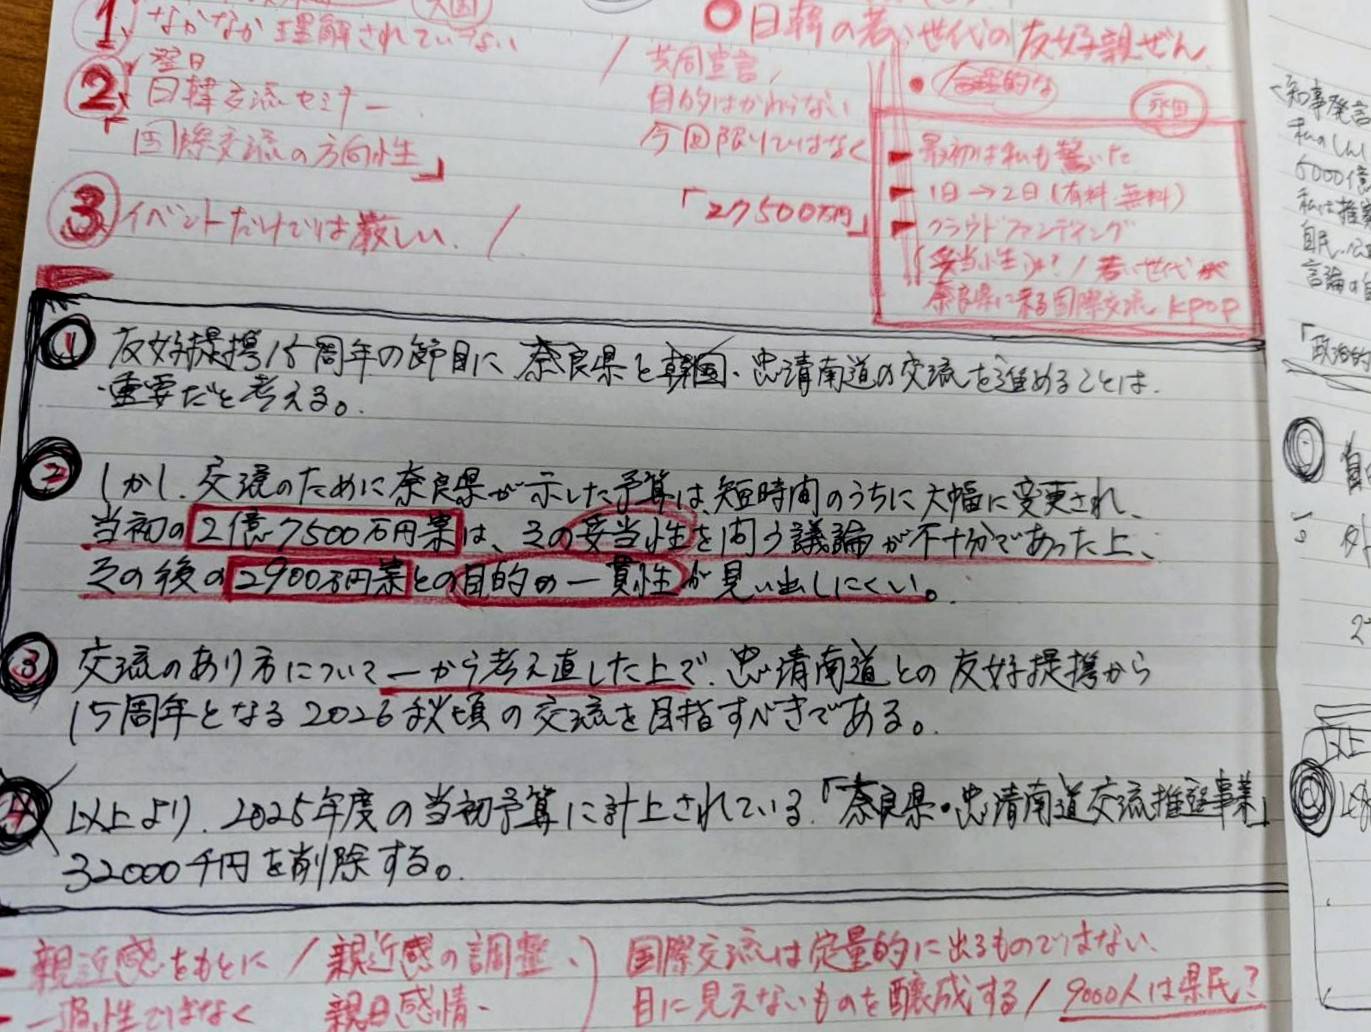 ① なかなか理解されていない
翌日
② 日韓交流セミナー
「国際交流の方向性」
③ イベントだけでは厳しい. /
/ 共同宣言,
目的はかわらない
今回限りではなく
「27500万円」
○日韓の若い世代の友好親ぜん
• 合理的な
永田
最初は私も驚いた
1日→2日(有料.無料)
クラウドファンディング
妥当性は? / 若い世代が
奈良県に来る国際交流 KPOP
① 友好提携15周年の節目に奈良県と韓国・忠清南道の交流を進めることは.
重要だと考える。
② しかし.交流のために奈良県が示した予算は短時間のうちに大幅に変更され、
当初の2億7500万円案は、その妥当性を問う議論が不十分であった上、
その後の2900万円案との目的の一貫性が見い出しにくい。
③ 交流のあり方について一から考え直した上で.忠清南道との友好提携から
15周年となる2026秋頃の交流を目指すべきである。
④ 以上より.2025年度の当初予算に計上されている.「奈良県・忠清南道交流推進事業」
32000千円を削除する。
親近感をもとに / 親近感の調整、
一過性ではなく 親日感情
国際交流は定量的に出るものではない、
目に見えないものを醸成する / 9000人は県民?
<知事発言
6000億
私は推察
自民.公
「政治的